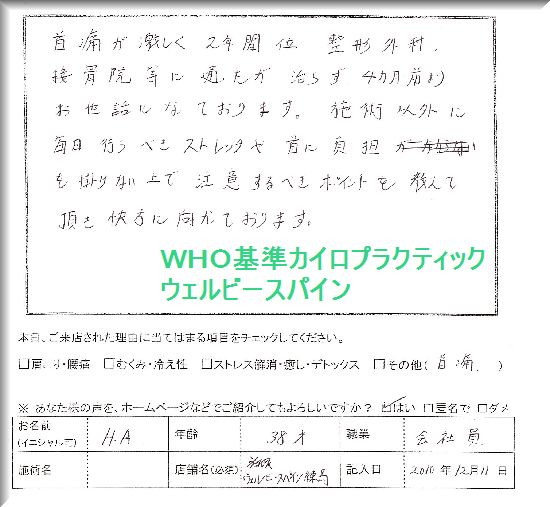 首痛が激しく2年間位 整形外科、
接骨院等に通たが治らず4カ月前より
お世話になております。施術以外に
毎日行うべきストレッチや首に負担
を掛けない上で注意するべきポイントを教えて
頂き快方に向かております。
WHO基準カイロプラクティック
ウェルビースパイン
本日、ご来店された理由に当てはまる項目をチェックしてください。
□肩こり・腰痛 □むくみ・冷え性 □ストレス解消・癒し・デトックス □その他( 首痛 )
※ あなた様の声を、ホームページなどでご紹介してもよろしいですか? ☑はい □匿名で □ダメ
お名前(イニシャル可) H.A 年齢 38才 職業 会社員
施術名 店舗名(必須) ウェルビースパイン練馬 記入日 2010年12月11日